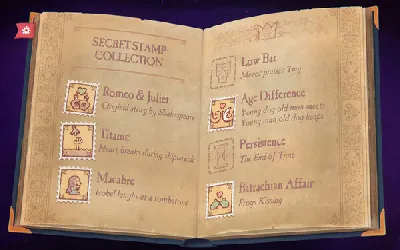 SECRET STAMP
COLLECTION
Romeo & Juliet
Original story by Shakespeare
Titanic
Heart breaks during shipwreck
Macabre
Isobel laughs at a tombstone
Low Bar
Mirror proves Tiny
Age Difference
Young dog old man meets
Young man old dog keeps
Persistence
The End of Time
Batrachian Affair
Frogs Kissing